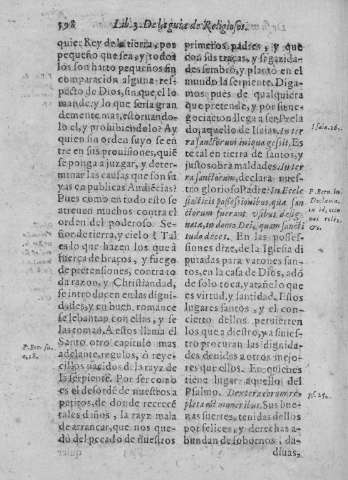 598 Lib. 3. De la guia de Religiosos.
quier Rey de la tierra, por
pequeño que sea, y todos
los son harto pequeños en
comparacion alguna res-
pecto de Dios, sin que el lo
mande: y lo que seria gran
demente mas, estoruando-
lo el, y prohibiendolo? Ay
quien sin orden suyo se en
tre en sus prouisiones, quié
se ponga a juzgar, y deter-
minar las causas que son su
yas en publicas Audiécias?
Pues como en todo esto se
atreuen muchos contra el
orden del poderoso. Se-
ñor de tierra, y cielo? Tal
es lo que hazen los que a
fuerça de braços, y fuego
de pretensiones, contra to
da razon, y Christiandad,
se introducen en las digni-
dades, y en buen romance
se lebantan con ellas, y se
las toman. A estos llama el
Santo otro capitulo mas
adelante, regulos, ò reye-
cillos nacidos de la rayz de
la serpiente. Por ser como
es el desordé de nuestros a
petitos, de donde recrecé
tales daños, la rayz mala
de arrancar, que nos que-
dò del pecado de nuestros
primeros padres, y que
con sus traças, y sagacida-
des sembrò, y plantò en el
mundo la serpiente. Diga-
mos pues de qualquiera
que pretende, y por su ne-
gociacion llega a ser Prela
do, aquello de Isaias. In ter
ra sanctorum iniqua gessit. Es
te cal en tierra de santos, y
justos obra maldades. In ter
ra sanctorum, declara nues-
tro glorioso Padre: In Eccle
siasticis possessionibus, quia san
ctorum fuerant vsibus desig-
nata, in domo Dei, quam sancti
tudo decet. En las posses-
siones dize, de la Iglesia di
putadas para varones san-
tos, en la casa de Dios, adò
de solo toca, y atañe lo que
es virtud, y santidad. Estos
lugares santos, y el con-
cierto dellos peruierten
los que a diestro, y a sinies-
tro procuran las dignida-
des deuidas a otros mejo-
res que ellos. En quienes
tiene lugar aquello del
Psalmo. Dextera eorum re-
pleta est muneribus. Sus bue-
nas suertes, tenidas dellos
por felices, y derechas a-
bundan de sobornos, da-
diuas,
Isaiæ. 26.
P. Bern. in
Psal. 25.